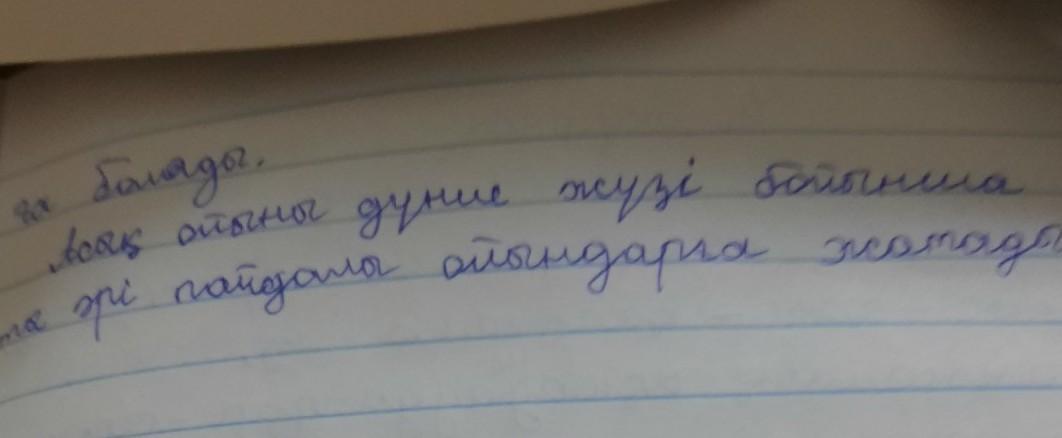 ға болады.
Асық ойыны дүние жүзі бойынша
әрі пайдалы ойындарға жатады